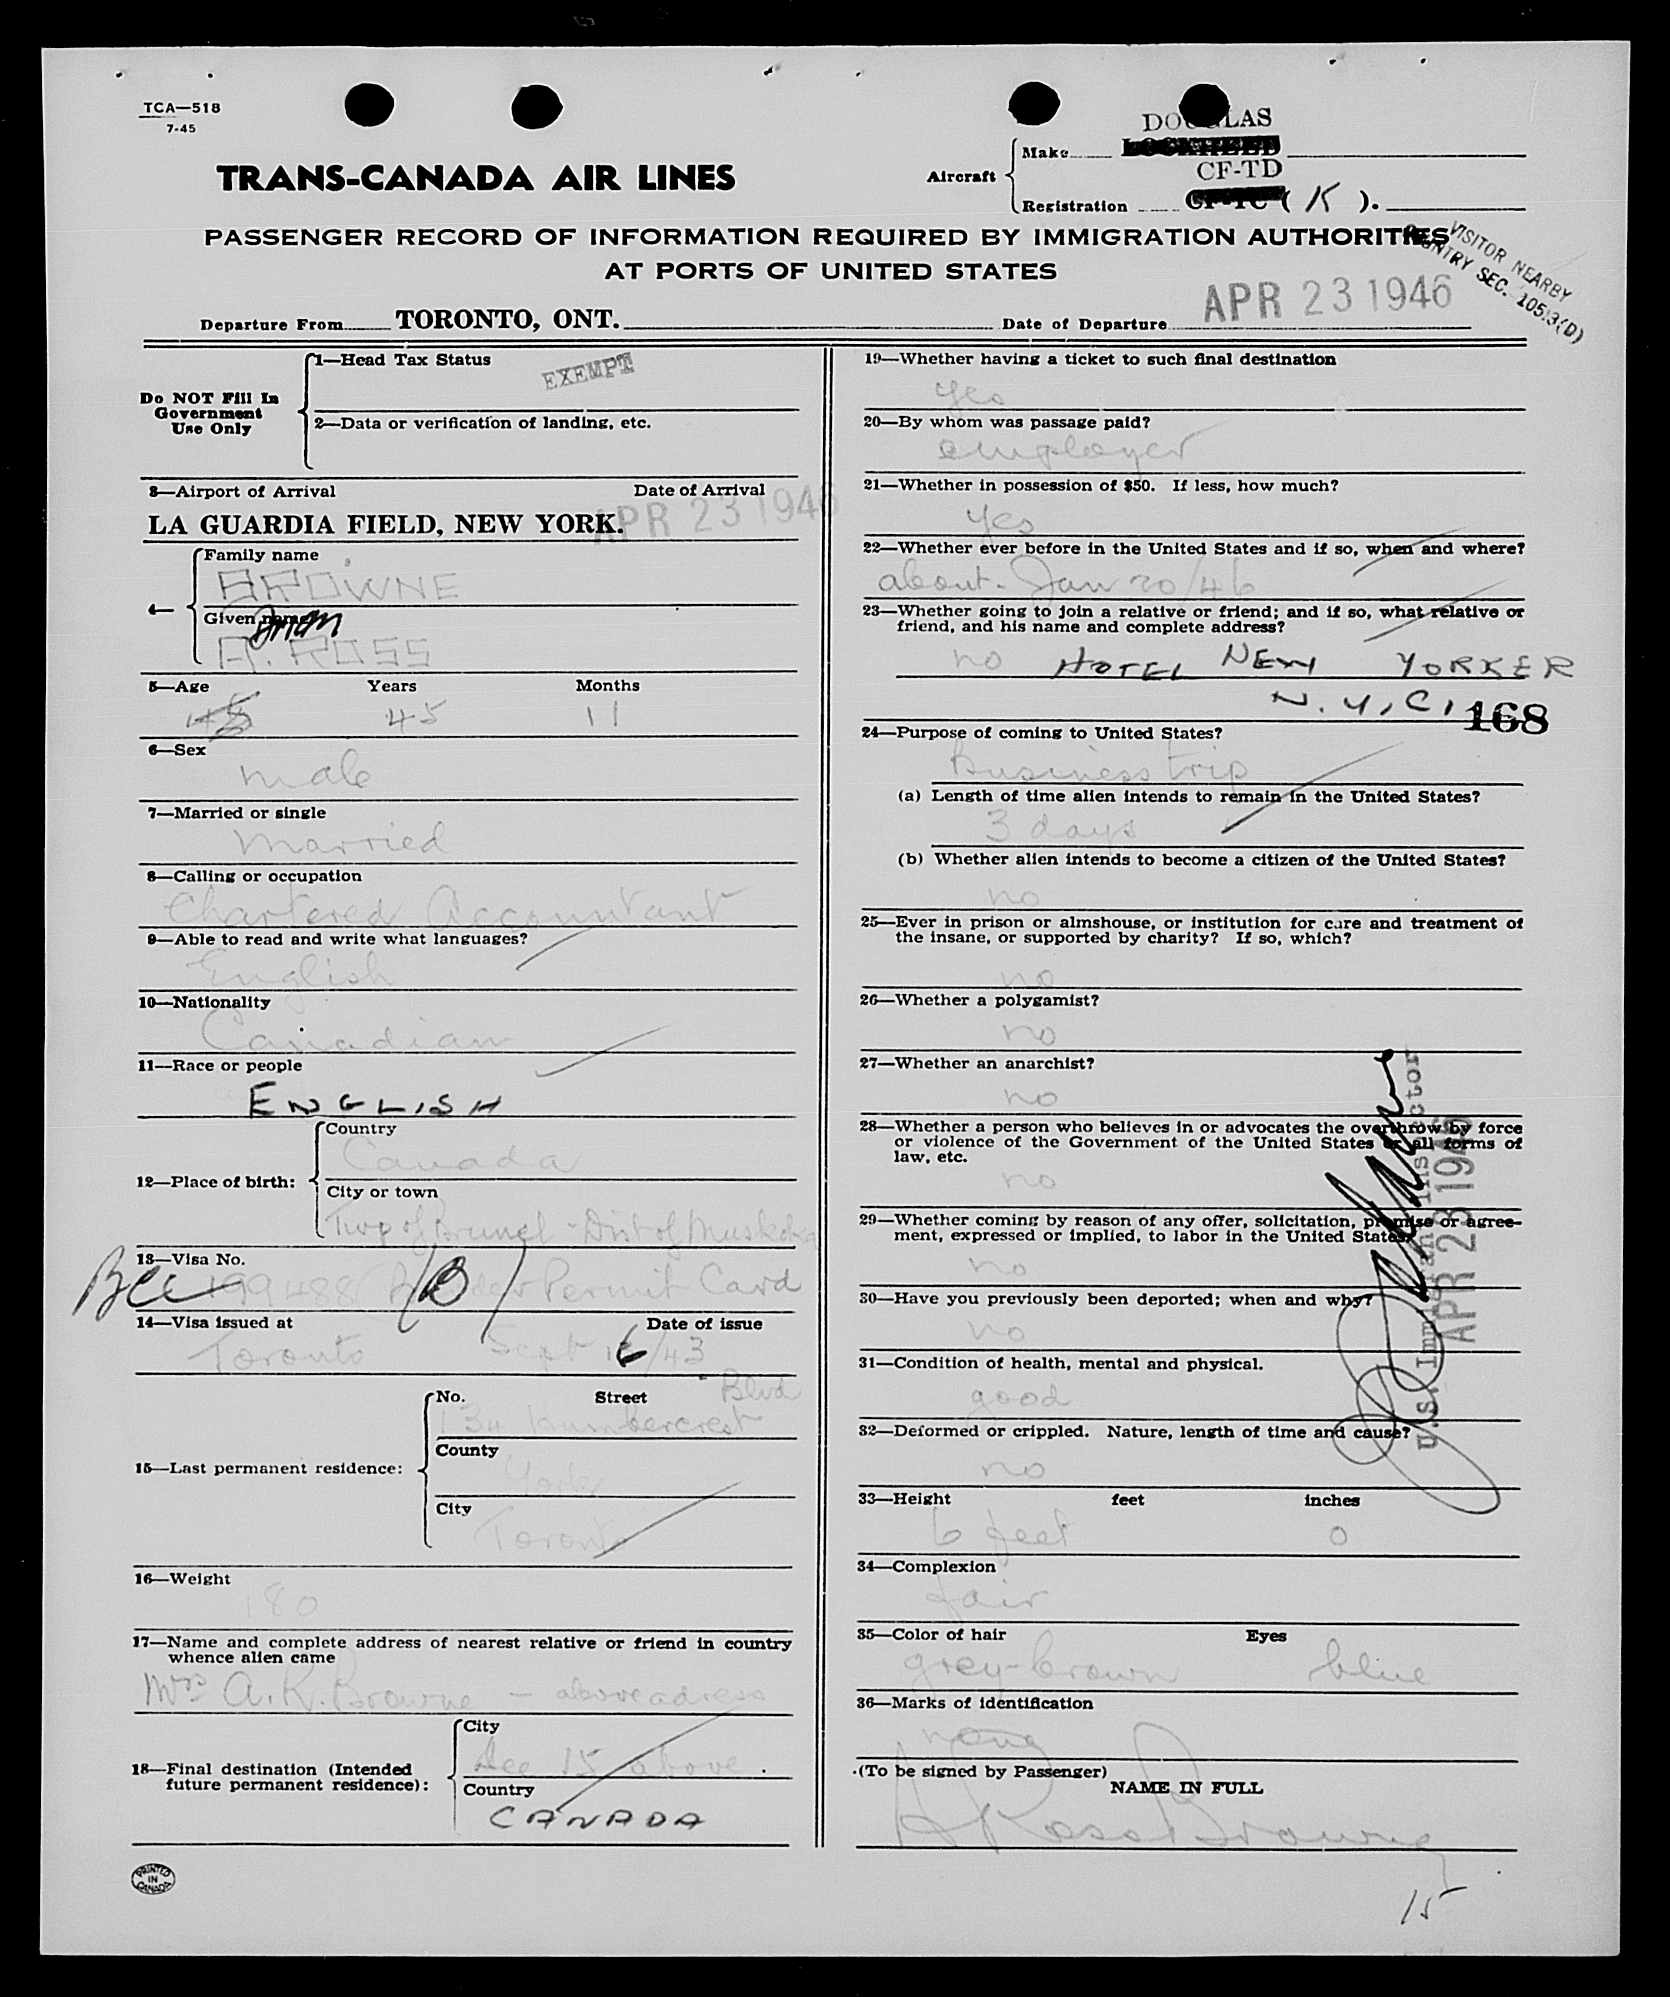 TCA—518
7-45
TRANS-CANADA AIR LINES
Aircraft
Make
DOUGLAS
LOCKHEED
CF-TD
Registration
CF-TC ( K ).
PASSENGER RECORD OF INFORMATION REQUIRED BY IMMIGRATION AUTHORITIES
AT PORTS OF UNITED STATES
VISITOR NEARBY
COUNTRY SEC. 105.3(D)
Departure From TORONTO, ONT.
Date of Departure APR 23 1946
Do NOT Fill In
Government
Use Only
1—Head Tax Status
EXEMPT
2—Data or verification of landing, etc.
3—Airport of Arrival Date of Arrival
LA GUARDIA FIELD, NEW YORK. APR 23 1946
4—
Family name
BROWNE
Given name
Brian
A. ROSS
5—Age Years Months
45 11
6—Sex
male
7—Married or single
married
8—Calling or occupation
Chartered Accountant
9—Able to read and write what languages?
English
10—Nationality
Canadian
11—Race or people
ENGLISH
12—Place of birth:
Country
Canada
City or town
Twp of Brunel - Dist of Muskoka
13—Visa No.
BCC 199488 (B) Permit Card
14—Visa issued at Date of issue
Toronto Sept 16/43
15—Last permanent residence:
No. Street
134 Humbercrest Blvd
County
York
City
Toronto
16—Weight
180
17—Name and complete address of nearest relative or friend in country
whence alien came
Mrs A. R. Browne — above adress
18—Final destination (Intended
future permanent residence):
City
See 15 above.
Country
CANADA
PRINTED
IN
CANADA
19—Whether having a ticket to such final destination
yes
20—By whom was passage paid?
employer
21—Whether in possession of $50. If less, how much?
yes
22—Whether ever before in the United States and if so, when and where?
about. Jan 20/46
23—Whether going to join a relative or friend; and if so, what relative or
friend, and his name and complete address?
no HOTEL NEW YORKER
N.Y.C. 168
24—Purpose of coming to United States?
Business trip
(a) Length of time alien intends to remain in the United States?
3 days
(b) Whether alien intends to become a citizen of the United States?
no
25—Ever in prison or almshouse, or institution for care and treatment of
the insane, or supported by charity? If so, which?
no
26—Whether a polygamist?
no
27—Whether an anarchist?
no
28—Whether a person who believes in or advocates the overthrow by force
or violence of the Government of the United States or all forms of
law, etc.
no
29—Whether coming by reason of any offer, solicitation, promise or agree-
ment, expressed or implied, to labor in the United States?
no
30—Have you previously been deported; when and why?
no
U.S. Immigration Inspector
APR 23 1946
31—Condition of health, mental and physical.
good
32—Deformed or crippled. Nature, length of time and cause?
no
33—Height feet inches
6 feet 0
34—Complexion
fair
35—Color of hair Eyes
grey-brown blue
36—Marks of identification
none
(To be signed by Passenger)
NAME IN FULL
A Ross Browne
15